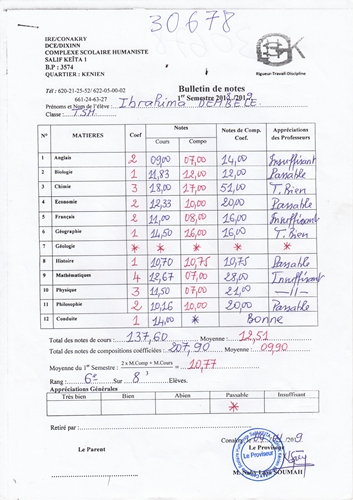 30678
IRE/CONAKRY
DCE/DIXINN
COMPLEXE SCOLAIRE HUMANISTE
SALIF KEÏTA 1
B.P : 3574
QUARTIER : KENIEN
Rigueur-Travail-Discipline
Tél : 620-21-25-52/ 622-05-00-02
661-24-63-27
Bulletin de notes
1er Semestre 2018/2019
Prénoms et Nom de l'élève : Ibrahima DEMBELE
Classe : TSM
N° MATIERES Coef Notes Notes de Comp. Coef. Appréciations des Professeurs
Cours Compo
1 Anglais 2 09,00 07,00 14,00 Insuffisant
2 Biologie 1 11,83 12,00 12,00 Passable
3 Chimie 3 18,00 17,00 51,00 T. Bien
4 Economie 2 12,33 10,00 20,00 Passable
5 Français 2 11,00 08,00 16,00 Insuffisant
6 Géographie 1 14,50 16,00 16,00 T. Bien
7 Géologie * * * * *
8 Histoire 1 10,70 10,75 10,75 Passable
9 Mathématiques 4 12,67 07,00 28,00 Insuffisant
10 Physique 3 11,50 07,00 21,00 -//-
11 Philosophie 2 10,16 10,00 20,00 Passable
12 Conduite 1 14,00 * Bonne
Total des notes de cours : 137,60 Moyenne : 12,51
Total des notes de compositions coefficiées : 207,90 Moyenne : 09,90
Moyenne du 1er Semestre : 2 x M.Comp + M.Cours = 10,77
3
Rang : 6e Sur 8 Elèves.
Appréciations Générales
Très bien Bien Abien Passable Insuffisant
*
Retiré par :
Conakry
Le Parent Le Proviseur
Le Proviseur
SOUMAH